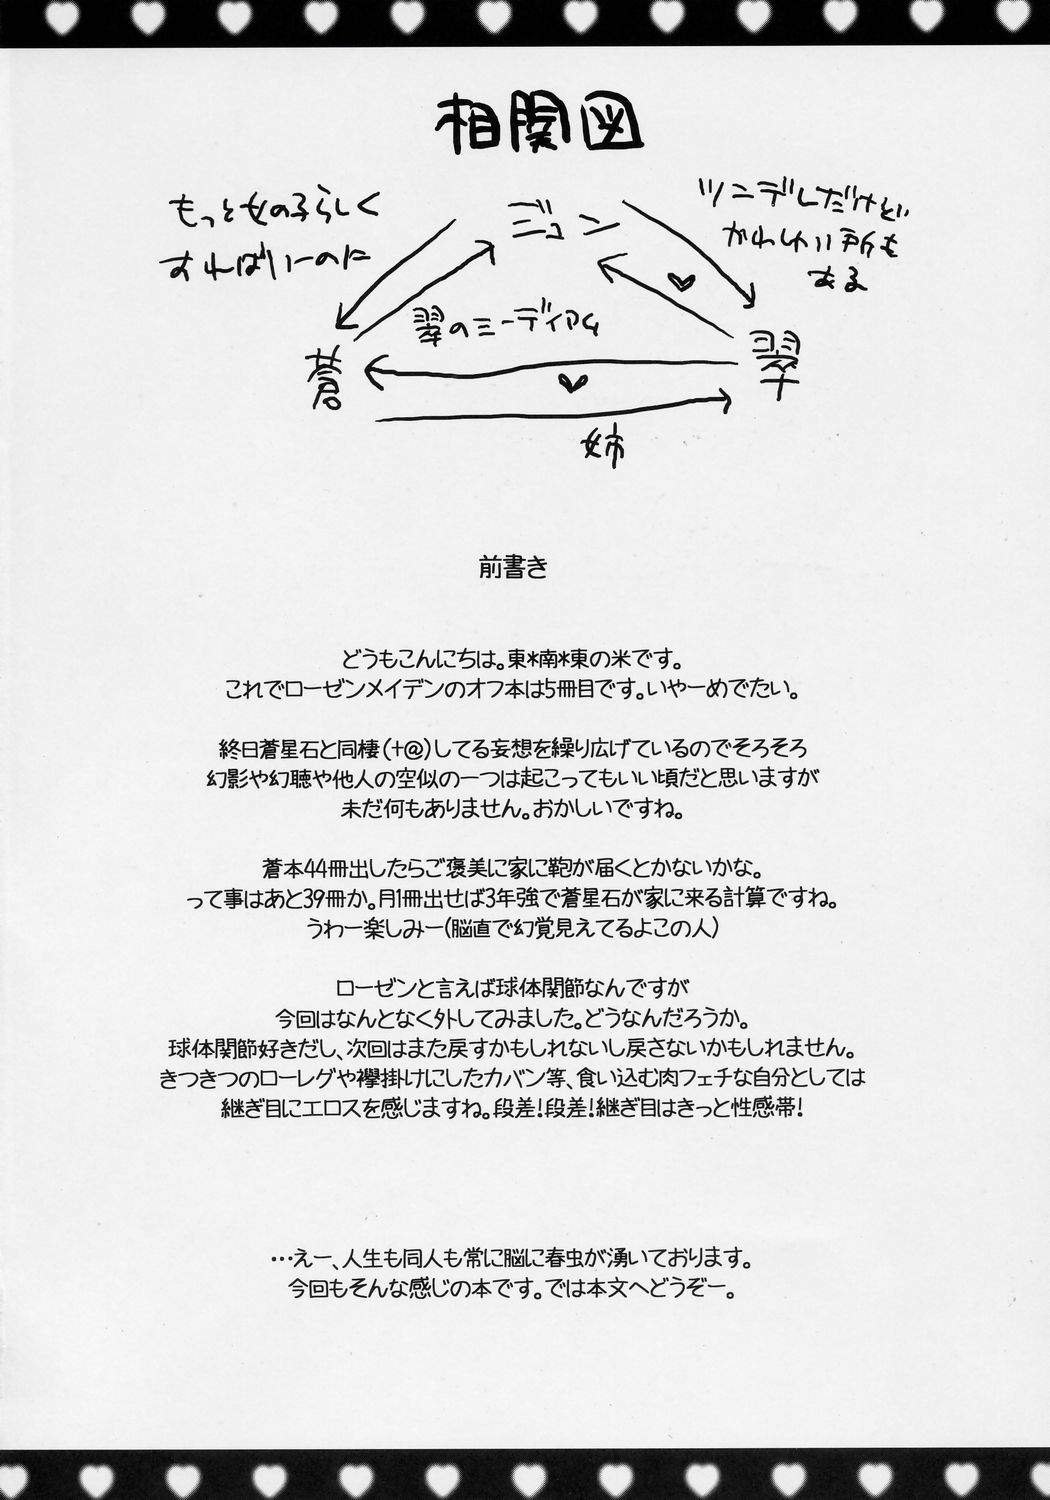 相関図
もっと女の子らしく
すればいーのに
ジュン
ツンデレだけど
かわいい所も
ある
翠のミーディアム
蒼
翠
姉
前書き
どうもこんにちは。東*南*東の米です。
これでローゼンメイデンのオフ本は5冊目です。いやーめでたい。
終日蒼星石と同棲(+@)してる妄想を繰り広げているのでそろそろ
幻影や幻聴や他人の空似の一つは起こってもいい頃だと思いますが
未だ何もありません。おかしいですね。
蒼本44冊出したらご褒美に家に鞄が届くとかないかな。
って事はあと39冊か。月1冊出せば3年強で蒼星石が家に来る計算ですね。
うわー楽しみー(脳直で幻覚見えてるよこの人)
ローゼンと言えば球体関節なんですが
今回はなんとなく外してみました。どうなんだろうか。
球体関節好きだし、次回はまた戻すかもしれないし戻さないかもしれません。
きつきつのローレグや襷掛けにしたカバン等、食い込む肉フェチな自分としては
継ぎ目にエロスを感じますね。段差!段差!継ぎ目はきっと性感帯!
…えー、人生も同人も常に脳に春虫が湧いております。
今回もそんな感じの本です。では本文へどうぞー。